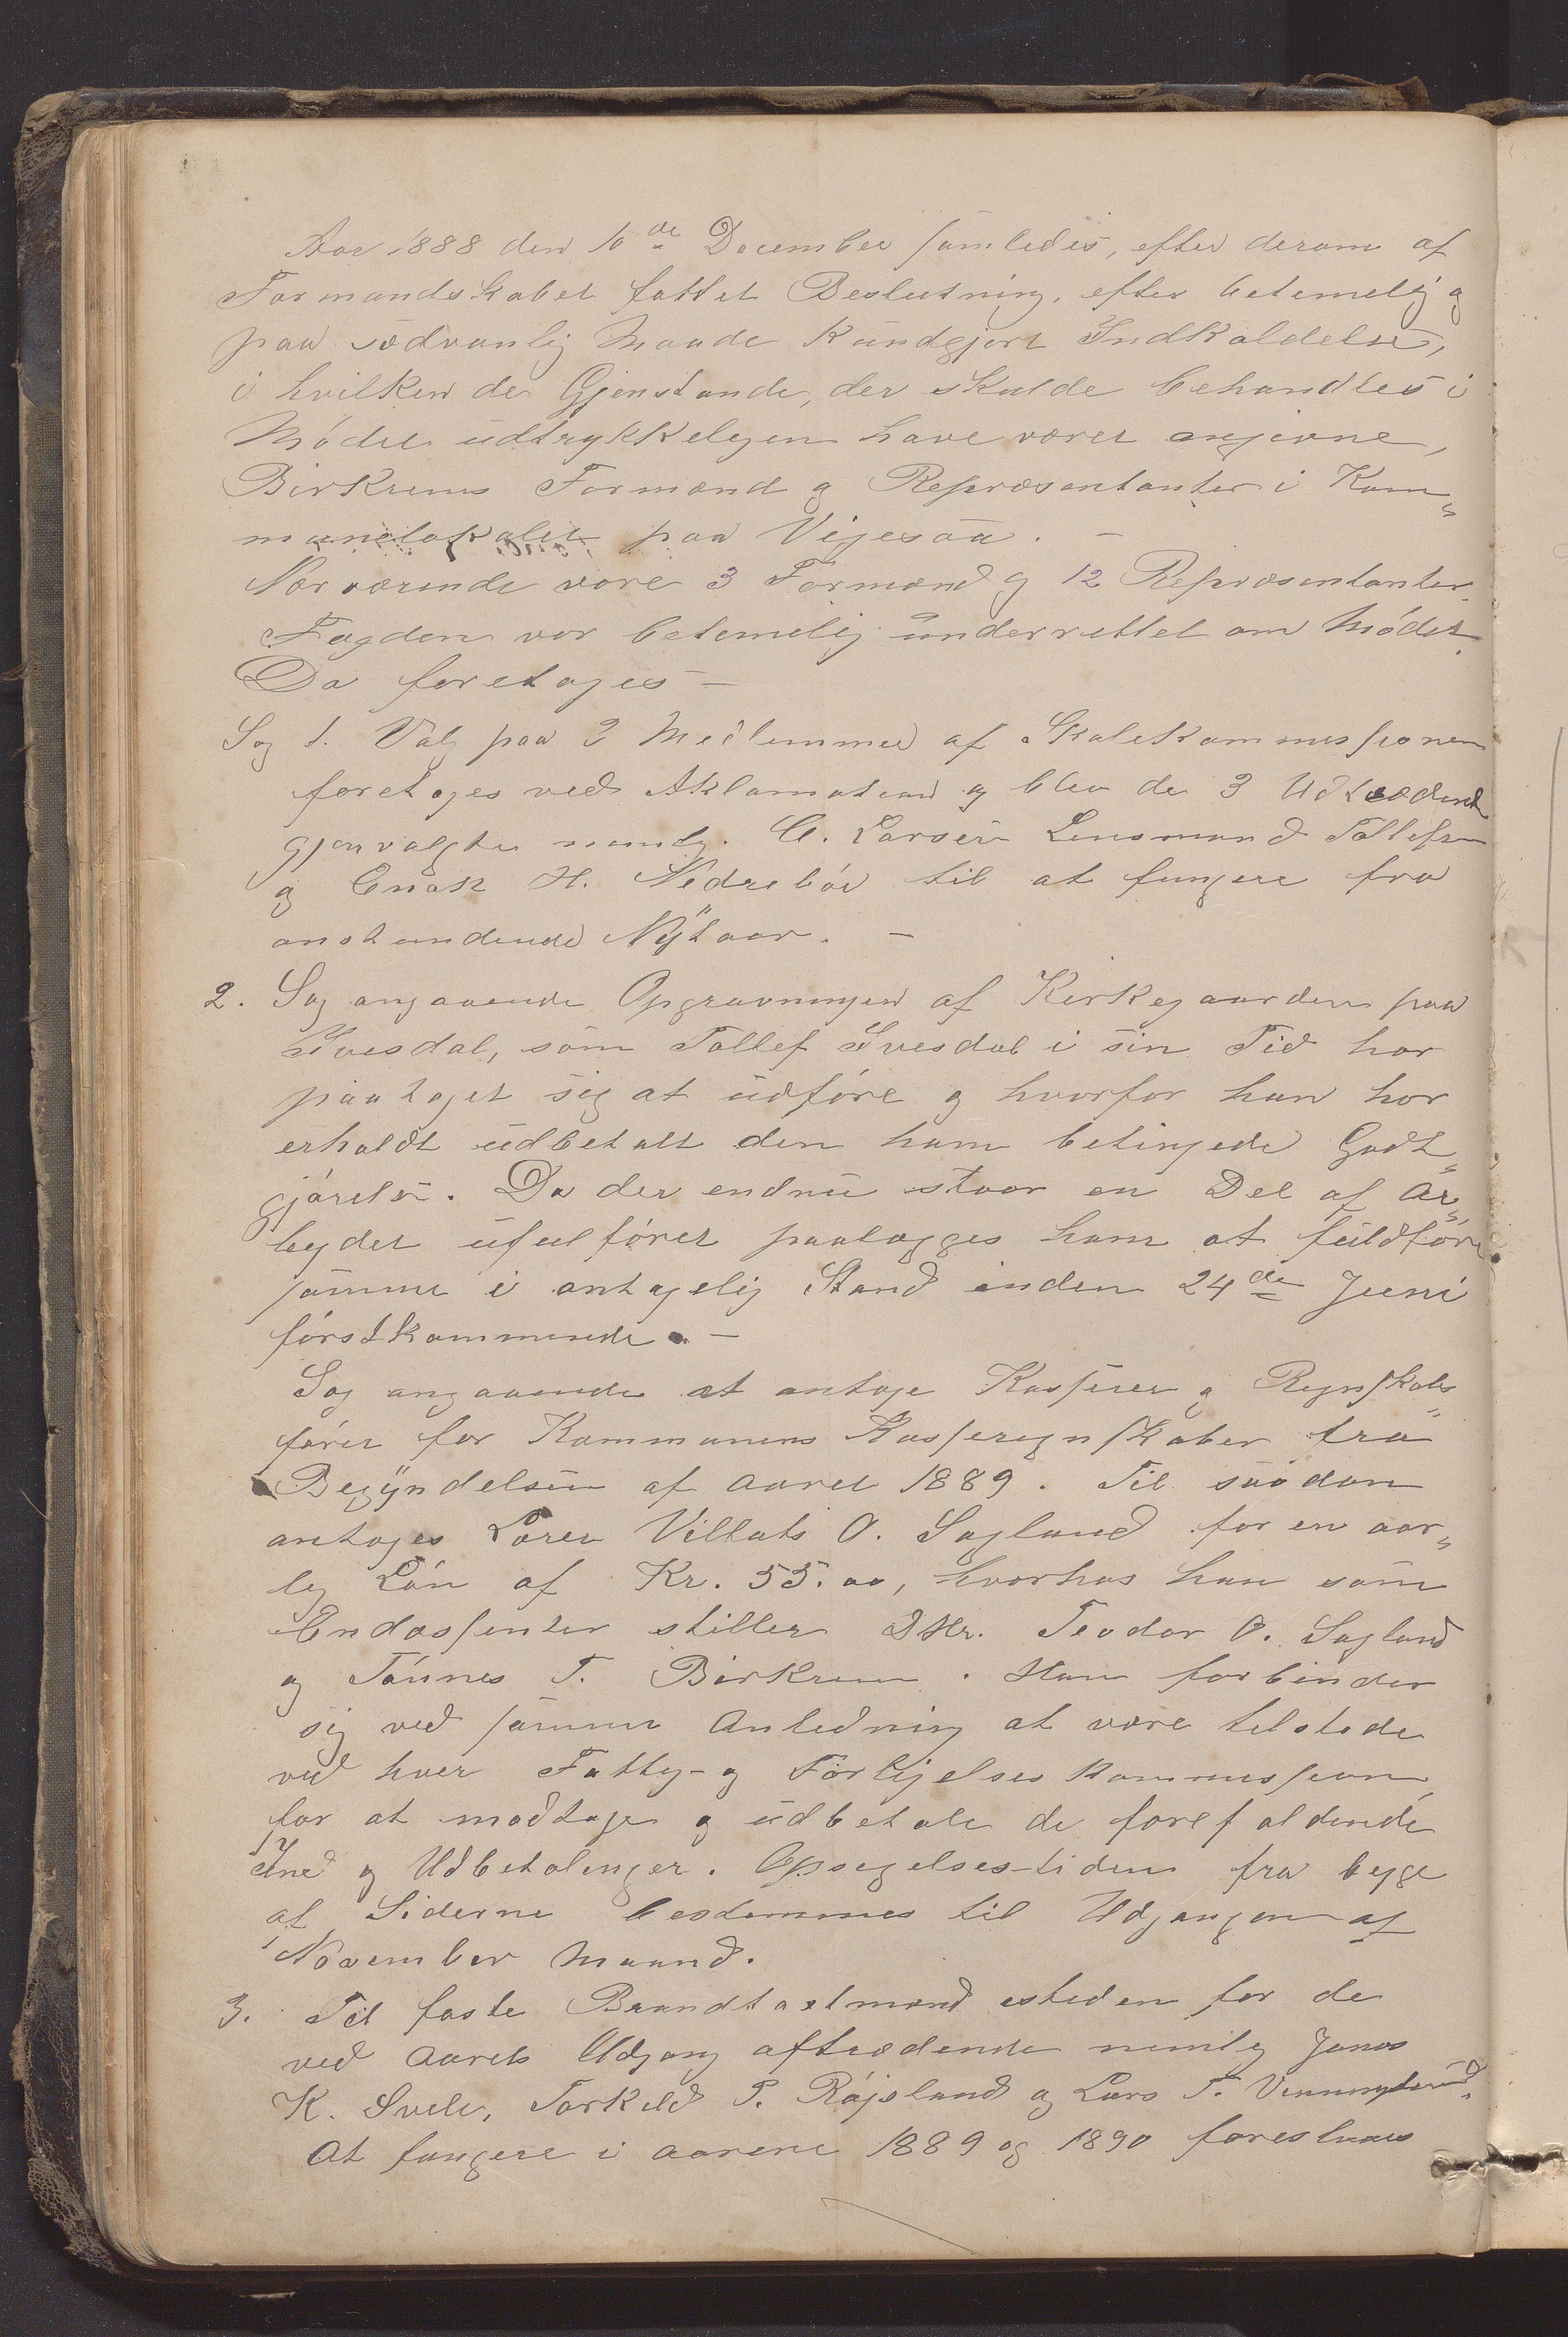 Aar 1888 den 10de December samledes, efter derom af
Formandskabet fattet Beslutning, efter betemelig og
paa sædvanlig Maade kundgjort Indkaldelse,
i hvilken de Gjenstande, der skulde behandles i
Mödet udtrykkelgen have været angivne,
Birkrems Formænd og Repræsentanter i Kom„
munelokalet paa Vigesaa. –
Nærværende vare 3 Formænd og 12 Repræsentanter.
Fogden var betemelig underrettet om Mödet.
Da foretages –
Sag 1. Valg paa 3 Medlemmer af Skolekommissionen
foretoges ved Aklamation og blev de 3 Udtrædende
gjenvalgte nemlg. C. Larsen Lensmand Tollefsen
og Enok H. Nedrebö til at fungere fra
anstundende Nÿtaar. –
2. Sag angaaende Opgravningen af Kirkegaarden paa
Ivesdal, som Tollef Ivesdal i sin Tid har
paataget sig at udföre og hvorfor han har
erholdt udbetalt den ham betingede Godt„
gjörelse. Da der endnu staar en Del af Ar„
beydet ufulföret paalægges ham at fuldföre
samme i antagelig Stand inden 24de Juni
förstkommende. –
Sag angaaende at antage Kasserer og Regnskabs„
förer for Kommunens Kasseregnskaber fra
Begÿndelsen af Aaret 1889. Til saadan
antages Lærer Villats O. Sagland for en aar„
lig Lön af Kr. 55.00, hvorhos han som
Endossenter stiller DHr. Teodor O. Sagland
og Tönnes T. Birkrem. Han forbinder
sig ved samme Anledning at være tilstede
ved hver Fattig- og Forligelseskommission
for at modtage og udbetale de forefaldende
Ind og Udbetalinger. Opsigelses-tiden fra begge
af Siderne bestemmes til Udgangen af
November Maand.
3. Til faste Brandtaxtmænd isteden for de
ved Aarets Udgang aftrædende nemlig Jonas
K. Svele, Torkeld P. Röjsland og Lars T.
at fungere i Aarene 1889 og 1890 foreslaaes